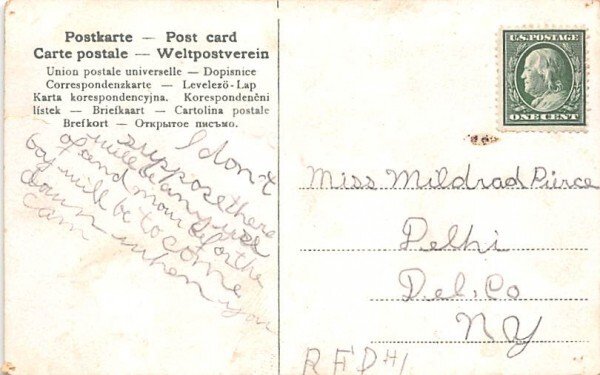 Postkarte — Post card
Carte postale — Weltpostverein
Union postale universelle — Dopisnice
Correspondenzkarte — Levelezö-Lap
Karta korespondencyjna. Korespondenční
lístek — Briefkaart — Cartolina postale
Brefkort — Открытое письмо.
U.S. POSTAGE
ONE CENT
I don't
suppose there
will be any use
of send mour before the
boy will be to come
down when you
cam
Miss Mildrad Pierce
Delhi
Del, Co
NY
RFD #1